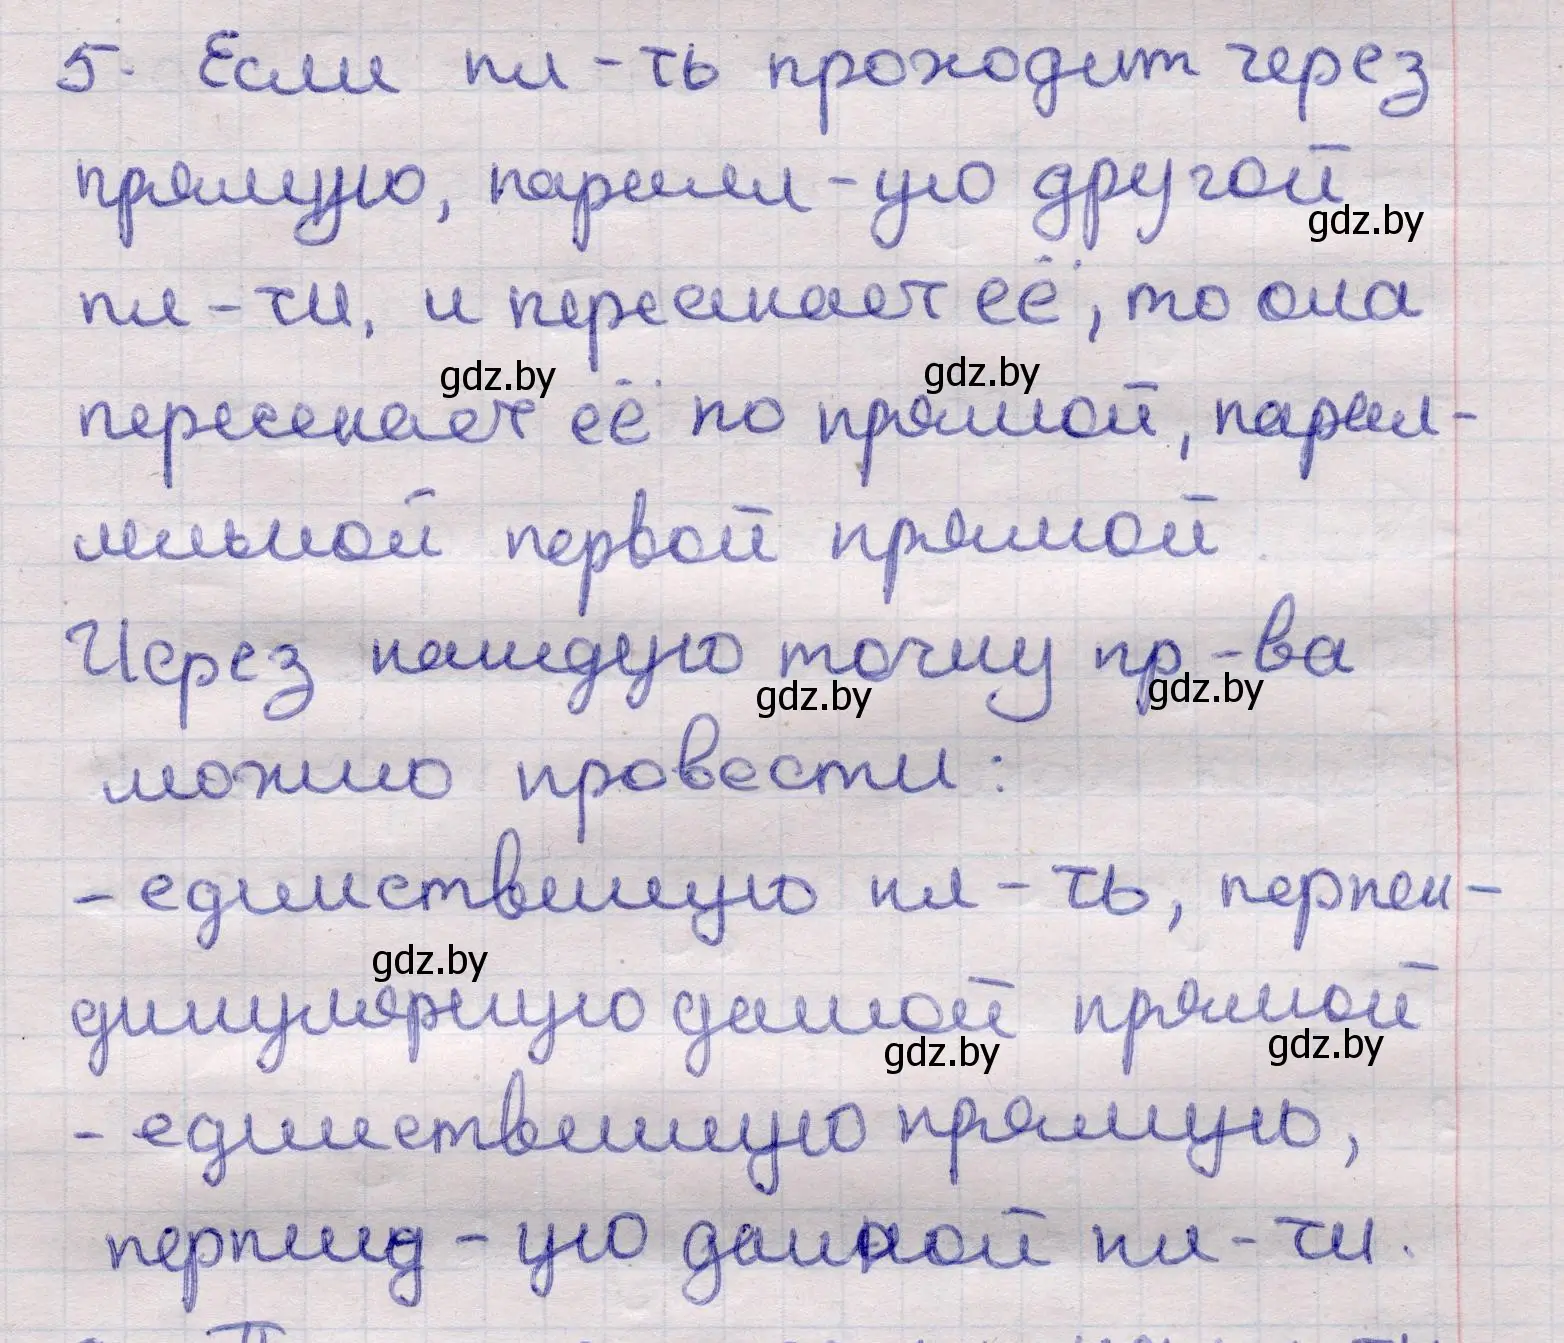 5. Если пл-ть проходит через
прямую, паралл-ую другой
gdz.by
пл-ти, и пересекает её, то она
gdz.by gdz.by
пересекает её по прямой, парал-
лельной первой прямой
Через каждую точку пр-ва
gdz.by gdz.by
можно провести:
- единственную пл-ть, перпен-
gdz.by
дикулярную данной прямой
gdz.by gdz.by
- единственную прямую,
перпенд-ую данной пл-ти.